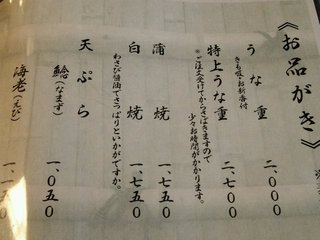 《お品がき》
うな重 二、000
きも吸・お新香付
特上うな重 二、七00
※ご注文受けてからさばきますので
少々お時間がかかります。
蒲焼 一、七五0
白焼 一、七五0
わさび醤油でさっぱりといかがですか。
天ぷら
鯰(なまず) 一、0五0
海老(えび) 一、